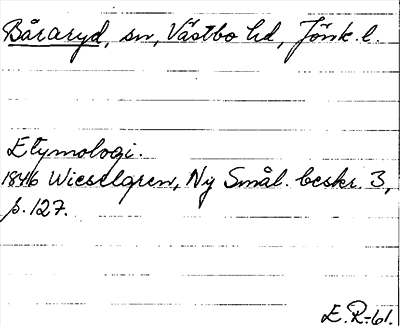 Båraryd, sn, Västbo hd, Jönk. l.
Etymologi.
1846 Wieselgren, Ny Smål. beskr. 3,
s. 127.
E. R-61.